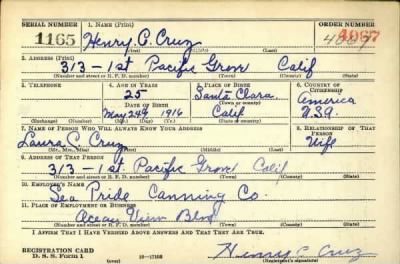 SERIAL NUMBER 1. NAME (Print) ORDER NUMBER
1165 Henry C. Cruz
2. ADDRESS (Print)
313-1st Pacific Grove Calif
(Number and street or R. F. D. number) (Town) (County) (State)
3. TELEPHONE 4. AGE IN YEARS 5. PLACE OF BIRTH 6. COUNTRY OF CITIZENSHIP
25 Santa Clara America
DATE OF BIRTH (Town or county)
May 24th 1916 Calif U.S.A.
(Exchange) (Number) (Mo.) (Day) (Yr.) (State or country)
7. NAME OF PERSON WHO WILL ALWAYS KNOW YOUR ADDRESS 8. RELATIONSHIP OF THAT PERSON
Laura C. Cruz Wife
(Mr., Mrs., Miss) (First) (Middle) (Last)
9. ADDRESS OF THAT PERSON
313-1st Pacific Grove Calif
(Number and street or R. F. D. number) (Town) (County) (State)
10. EMPLOYER'S NAME
Sea Pride Canning Co.
11. PLACE OF EMPLOYMENT OR BUSINESS
Ocean View Blvd
(Number and street or R. F. D. number) (Town) (County) (State)
I AFFIRM THAT I HAVE VERIFIED ABOVE ANSWERS AND THAT THEY ARE TRUE.
REGISTRATION CARD
D. S. S. Form 1 Henry C Cruz